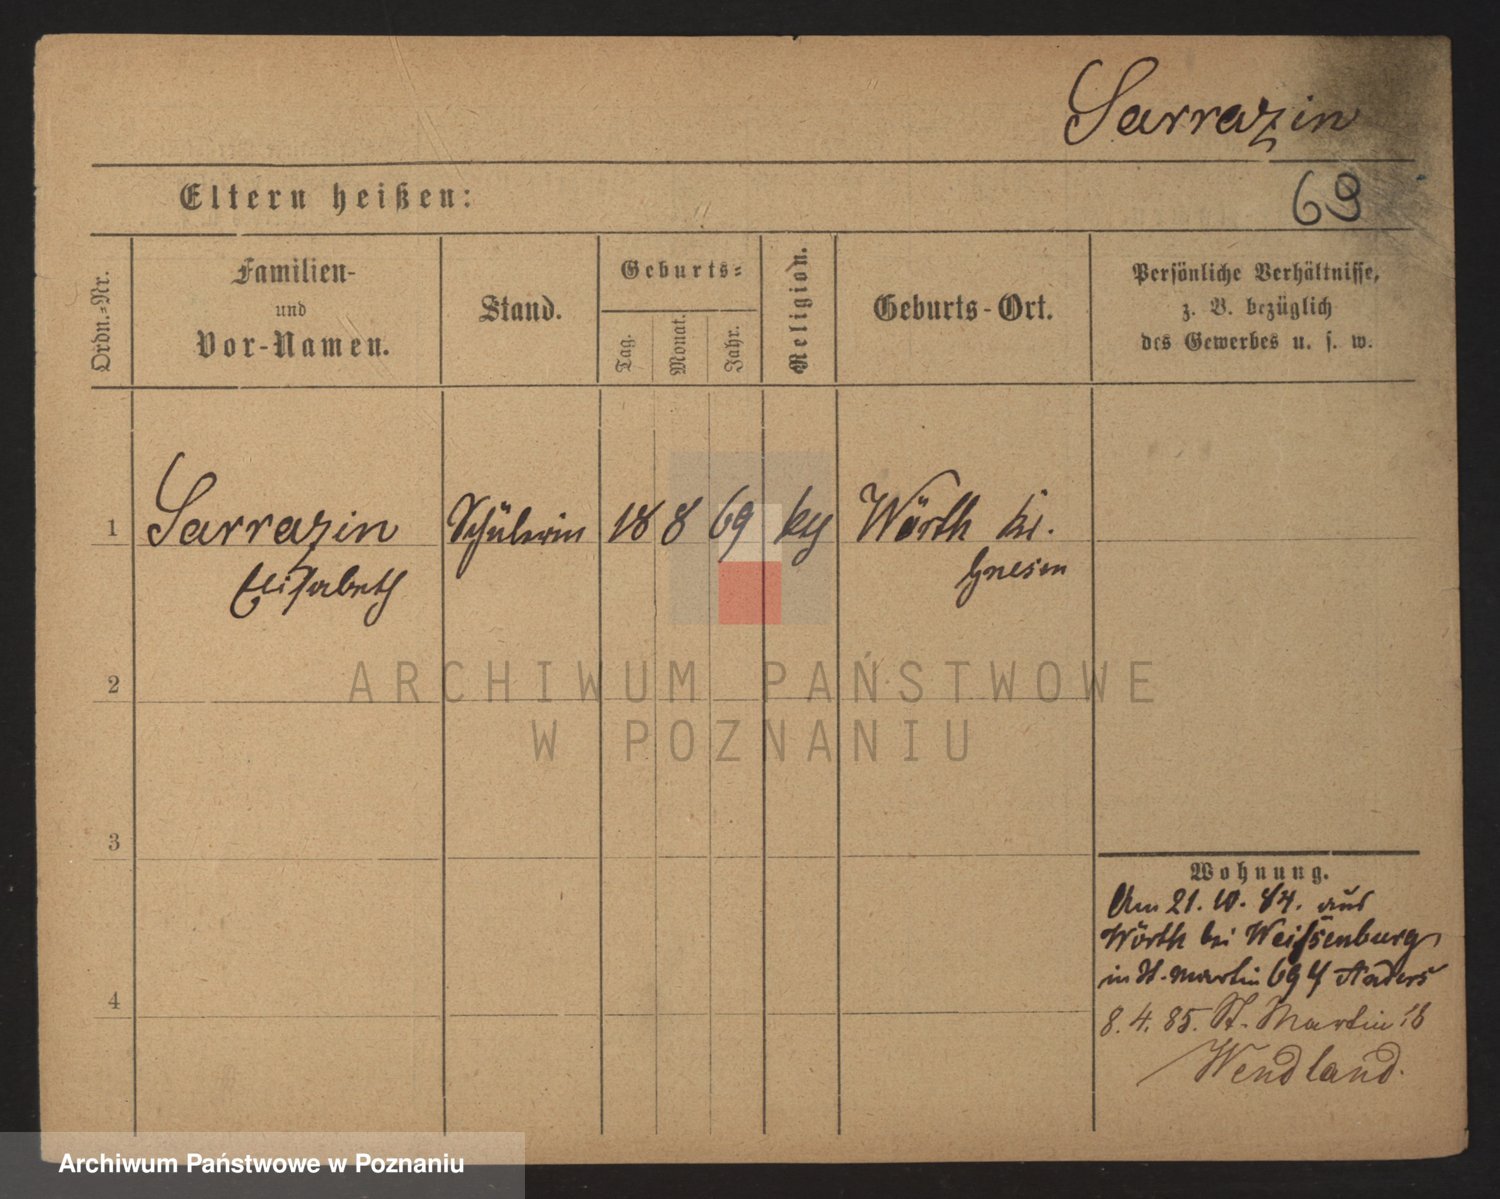 Sarrazin
Eltern heißen:
69
Ordn.-Nr.
Familien-
und
Vor-Namen.
Stand.
Geburts-
Tag.
Monat.
Jahr.
Religion.
Geburts-Ort.
Persönliche Verhältnisse,
z. B. bezüglich
des Gewerbes u. s. w.
1 Sarrazin Schülerin 18 8 69 Wörth
Elisabeth Gnesen
2
3
4
Wohnung.
Am 21. 10. 84. aus
Wörth bei Weissenburg
in St. Martin 69
8. 4. 85. St. Martin 18
Wendland.
ARCHIWUM PAŃSTWOWE
W POZNANIU
Archiwum Państwowe w Poznaniu